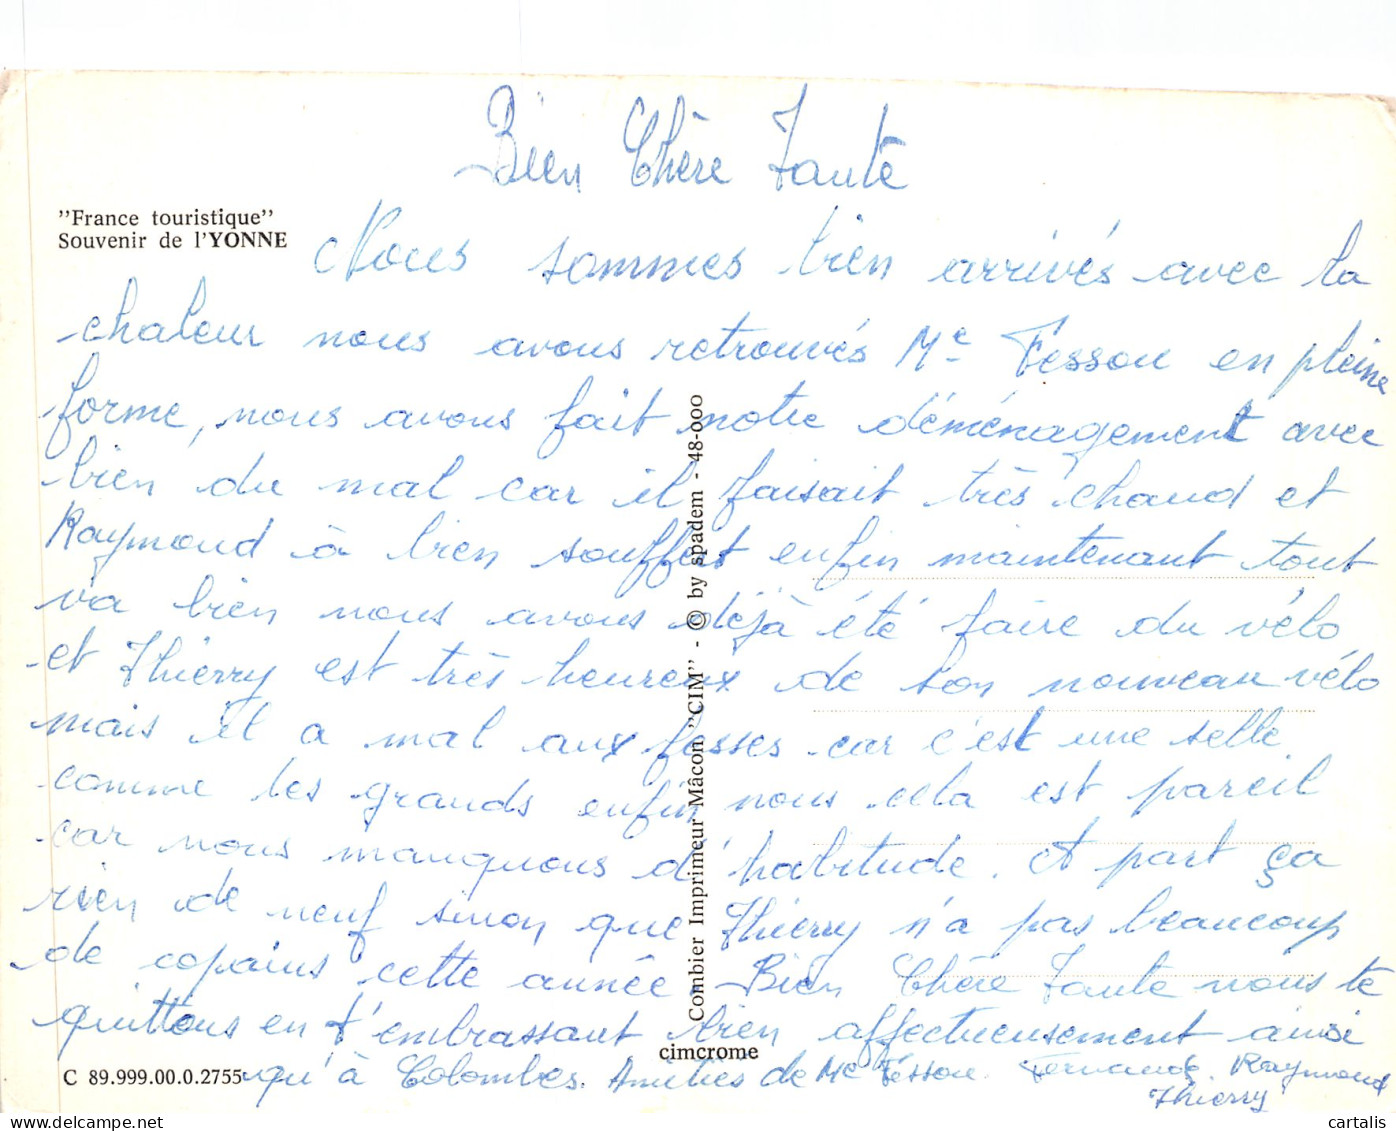 Bien Chère Tante
"France touristique"
Souvenir de l'YONNE
Nous sommes bien arrivés avec la
chaleur nous avons retrouvés Me Fesson en pleine
forme, nous avons fait notre déménagement avec
bien du mal car il faisait très chaud et
Raymond à bien souffert enfin maintenant tout
va bien nous avons déjà été faire du vélo
et Thierry est très heureux de son nouveau vélo
mais il a mal aux fesses car c'est une selle
comme les grands enfin nous cela est pareil
car nous manquons d'habitude. A part ça
rien de neuf sinon que Thierry n'a pas beaucoup
de copains cette année. Bien Chère Tante nous te
quittons en t'embrassant bien affectueusement ainsi
qu'à Colombes. Amitiés de Me Fesson. Fernande. Raymond
Thierry
Combier Imprimeur Mâcon "CIM" - © by spadem - 48-000
cimcrome
C 89.999.00.0.2755
delcampe.net
cartalis